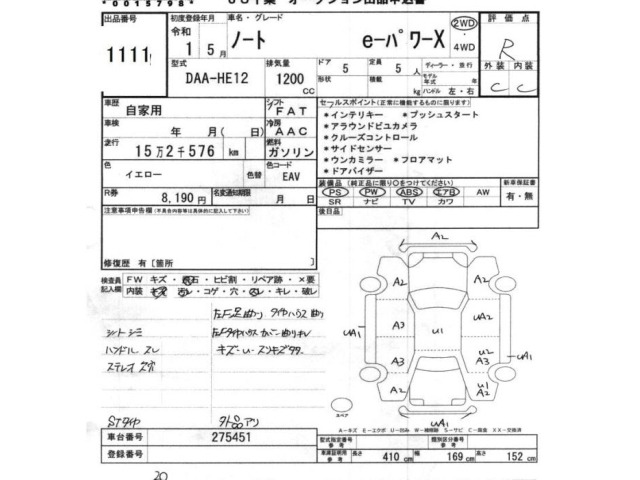 *0015798*
出品番号 1111
初度登録年月 令和 1年 5月
車名・グレード ノート e-パワーX
2WD・4WD
評価点 R
外装 C 内装 C
型式 DAA-HE12
排気量 1200 CC
ドア 5 定員 5人
形状 積載 kg
ディーラー・並行
モデル年式 年式
ハンドル 左・右
車歴 自家用
シフト FAT
車検 年 月(日)
冷房 AAC
走行 15万2千576 km
燃料 ガソリン
色 イエロー 色替
色コード EAV
R券 8,190円
名変通知期限 月 日
セールスポイント(正常に機能するものに限ります)
*インテリキー *プッシュスタート
*アラウンドビュカメラ
*クルーズコントロール
*サイドセンサー
*ウンカミラー *フロアマット
*ドアバイザー
装備品(純正品に限り○をつけてください)
PS PW ABS エアB AW
SR ナビ TV カワ
新車保証書 有・無
注意事項申告欄(不具合内容等は具体的に記入して下さい)
後日品
修復歴 有[箇所
検査員記入欄
FW キズ・飛石・ヒビ割・リペア跡・×要
内装 キズ・汚レ・コゲ・穴・スレ・キレ・破レ
シートシミ
ハンドル スレ
ステレオ穴
キズ・U・スリキズ多々
STタイヤ
外品アリ
A2
A2 A2
UA1 A3 U1 UA2 UA1
A3 U2 A3
A2 U1 A2
UA1
スペア
A-キズ E-エクボ U-凹み W-補修跡 S-サビ C-腐食 XX-交換済
車台番号 275451
登録番号
型式指定番号 参考
類別区分番号 参考
車庫証明用 参考 長さ 410 cm 幅 169 cm 高さ 152 cm
20